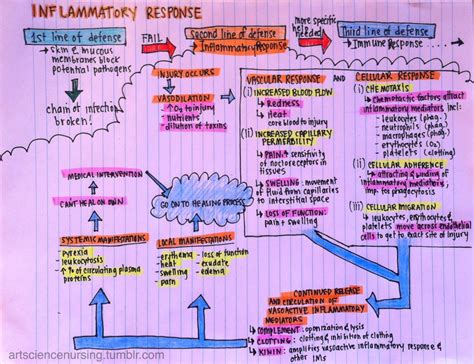 INFLAMMATORY RESPONSE
1st line of defense
→ Skin & mucous
membranes block
potential pathogens
chain of infection
broken!
FAIL
Second line of defense
→ Inflammatory Response
more specific
help needed
Third line of defense
→ Immune Response
INJURY OCCURS
VASODILATION
- O2 to injury
- nutrients
- dilution of toxins
VASCULAR RESPONSE AND CELLULAR RESPONSE
(i) INCREASED BLOOD FLOW
↳ Redness
↳ Heat
core blood to injury
(ii) INCREASED CAPILLARY
PERMEABILITY
↳ PAIN: sensitivity
of nocioreceptors in
tissues
↳ SWELLING: movement
of fluid from capillaries
to interstitial space
↳ LOSS OF FUNCTION:
pain + swelling
(i) CHEMOTAXIS
↳ Chemotactic factors attract
inflammatory mediators incl:
- leukocytes (phag.)
- neutrophils (phag.)
- macrophages (phag.)
- erythrocytes (O2)
- platelets (clotting)
(ii) CELLULAR ADHERENCE
↳ attracting & binding of
inflammatory mediators,
imp for phagocytosis
(iii) CELLULAR MIGRATION
↳ leukocytes, erythrocytes, &
platelets move across endothelial
cells to get to exact site of injury
MEDICAL INTERVENTION
CANT HEAL ON OWN
GO ON TO HEALING PROCESS
SYSTEMIC MANIFESTATIONS
- pyrexia
- leukocytosis
- ↑ % of circulating plasma
proteins
LOCAL MANIFESTATIONS
- erythema
- heat
- swelling
- pain
- loss of function
- exudate
- edema
CONTINUED RELEASE
AND CIRCULATION OF
VASOACTIVE INFLAMMATORY
MEDIATORS
↳ COMPLEMENT: opsonization & lysis
↳ CLOTTING: clotting & inhibition of clotting
↳ KININ: amplifies vasoactive inflammatory response &
other IMs
artsciencenursing.tumblr.com